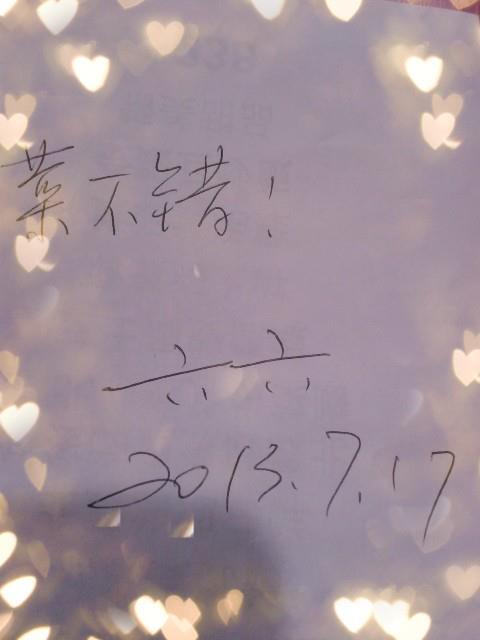 菜不错!
六六
2013.7.17